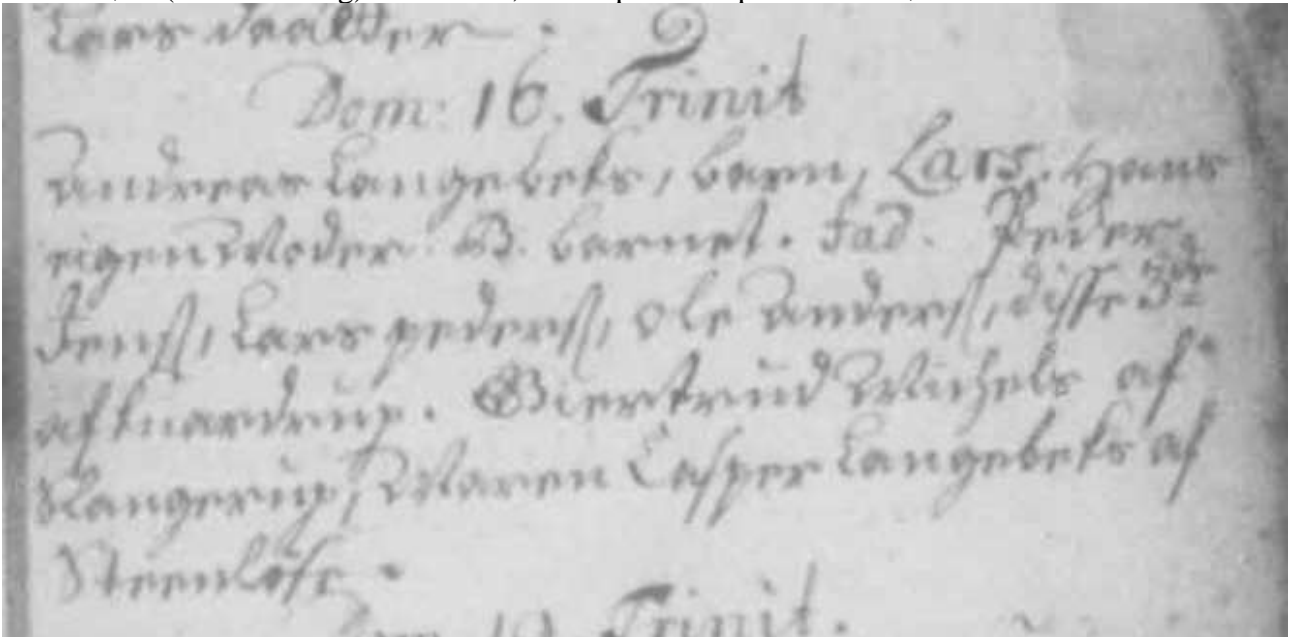 Lars
Dom: 16. Trinit
Andreas Langebeks, barn, Lars. Hans
eigen Moder B. barnet. Fad. Peder
Jenss, Lars pederss, Ole Anderss, disse 3de
af Knardrup. Giertrud Michels af
Slangerup, Maren Casper Langebeks af
Steenløse.
Trinit.